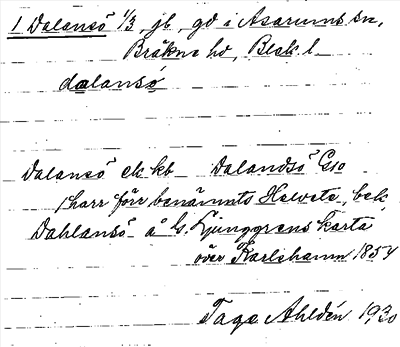 1 Dalansö 1/3 jb, gd i Asarums sn,
Bräkne hd, Blek. l.
dalansö
Dalansö ek. kb Dalandsö G10
har förr benämnts Helvete, bek.
Dahlansö å G. Ljunggrens karta
över Karlshamn 1854
Tage Ahldén 1930